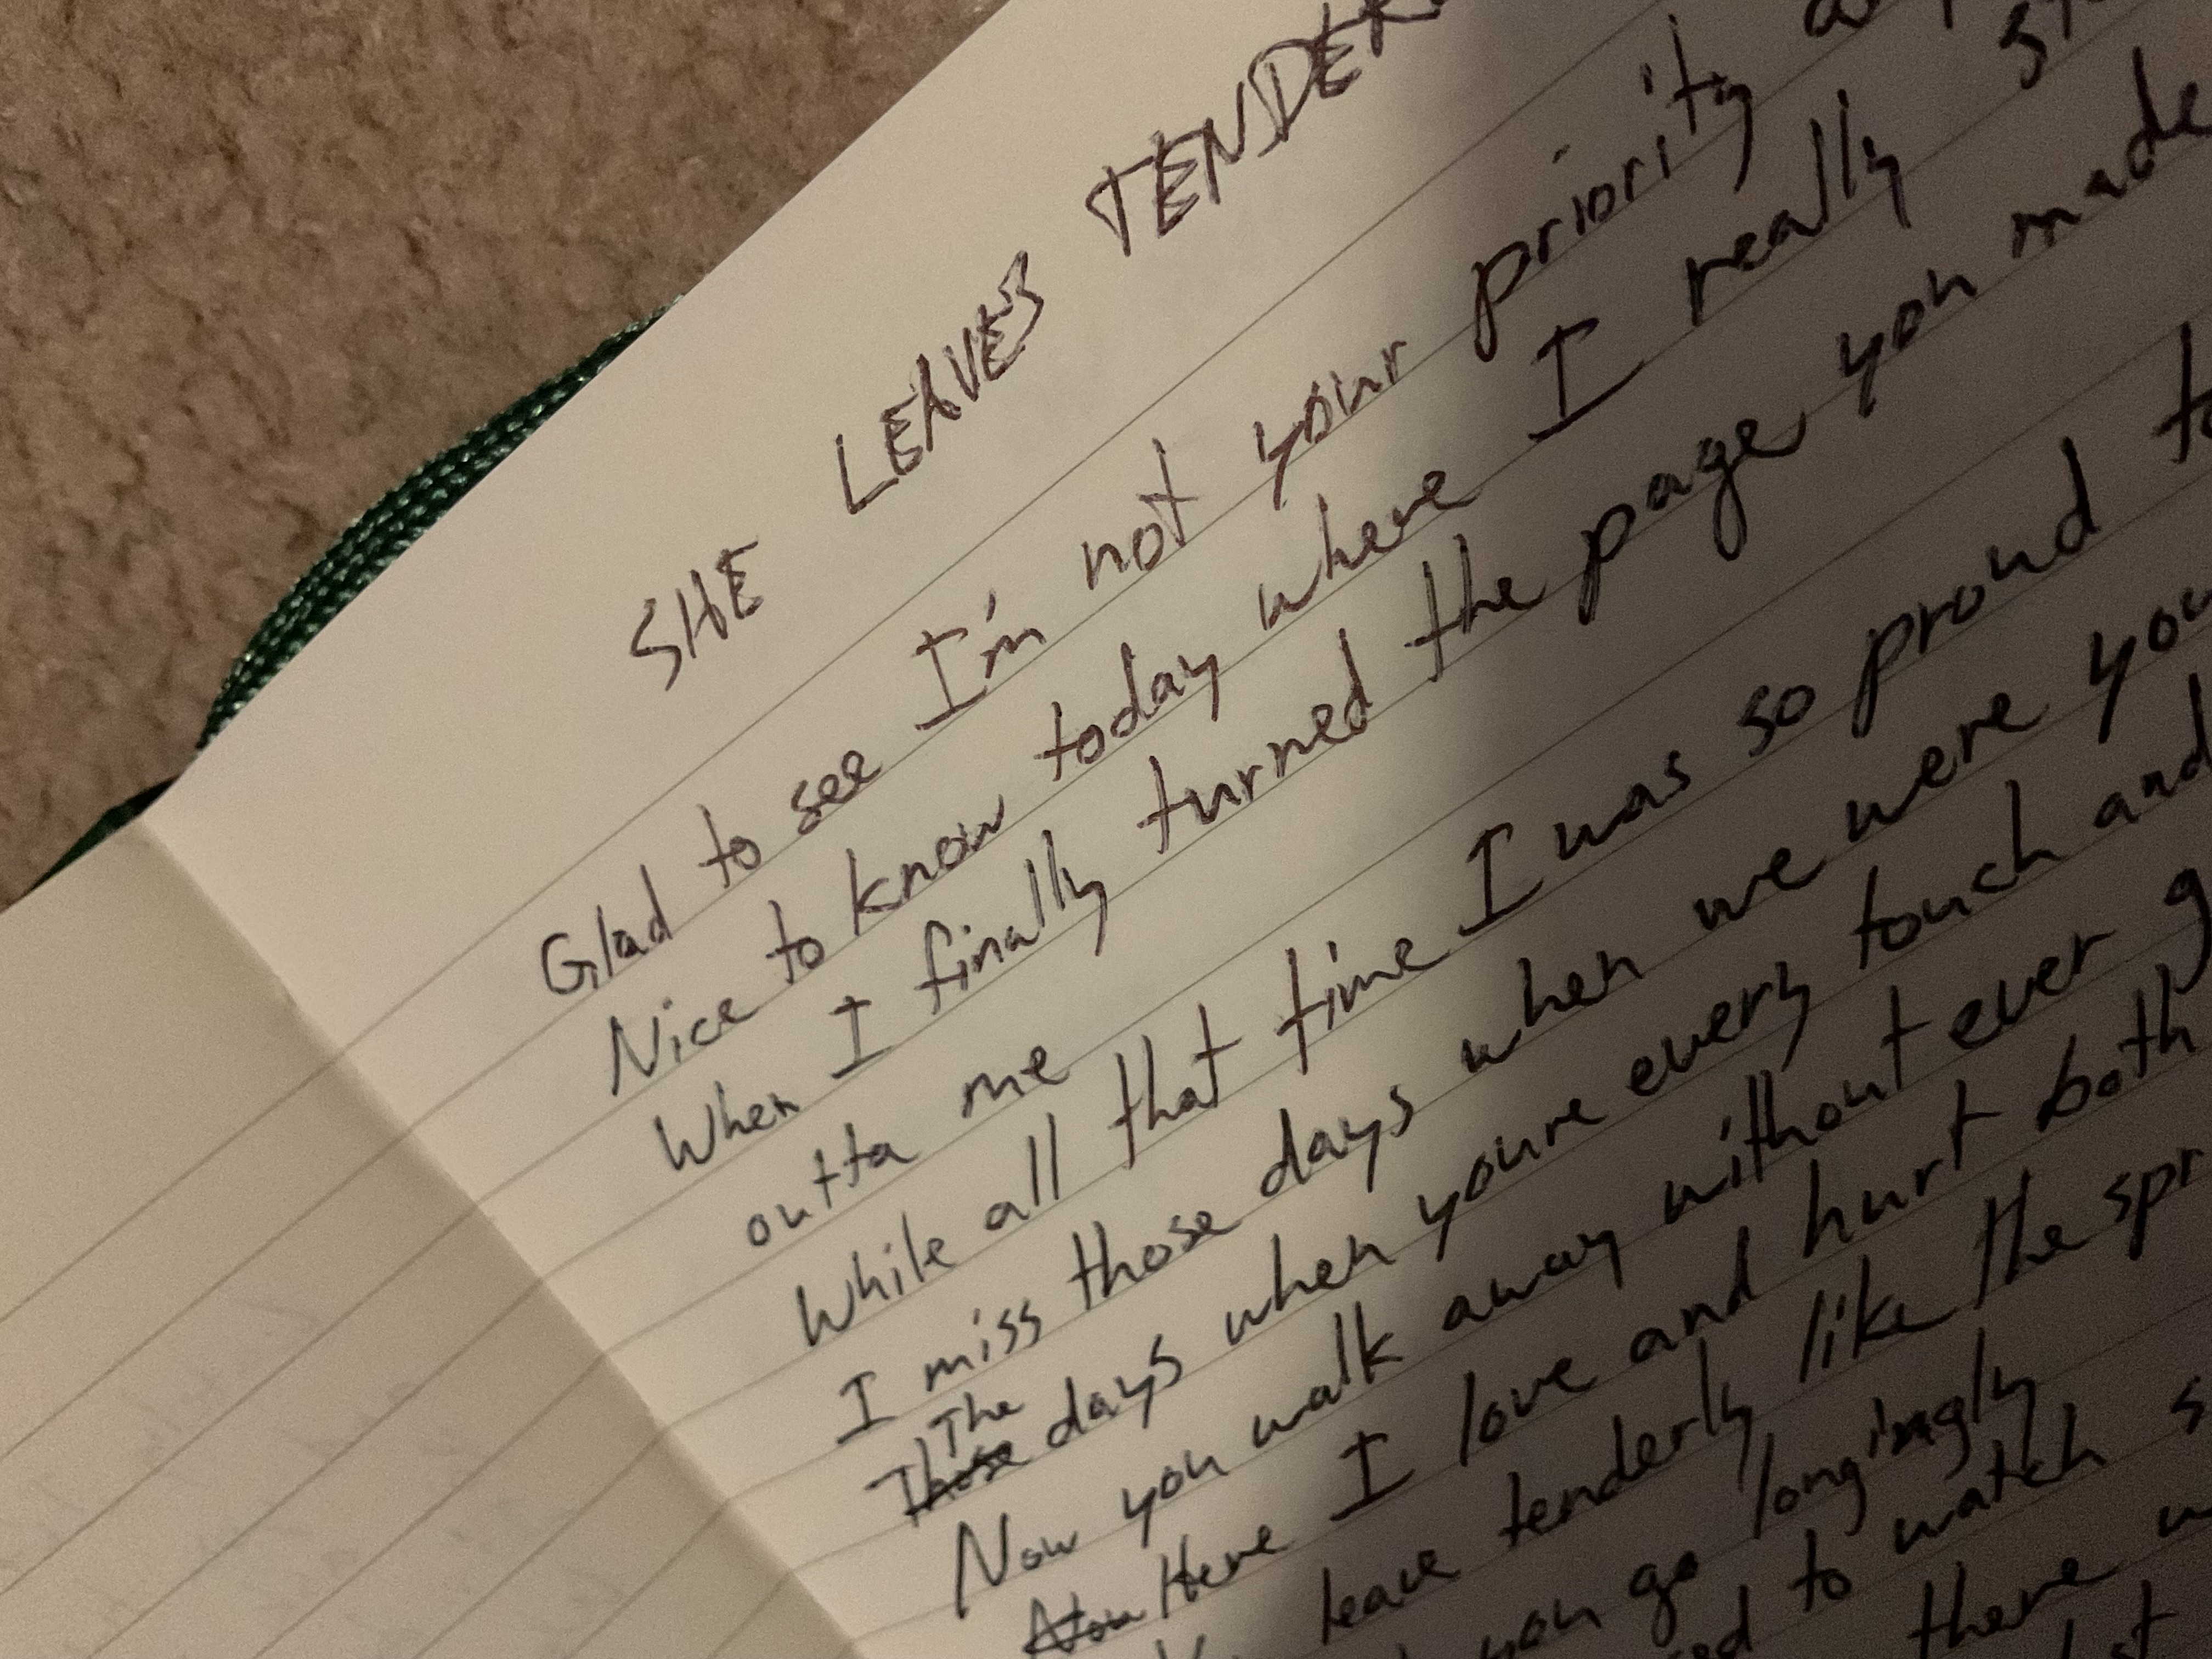 SHE LEAVES
Glad to see I'm not your priority
Nice to know today where I really
When I finally turned the page you made
outta me
While all that time I was so proud
I miss those days when we were
The
Those days when youre every touch and
Now you walk away without ever
Now Here I love and hurt both
leave tenderly like the
you go longingly
to watch
there